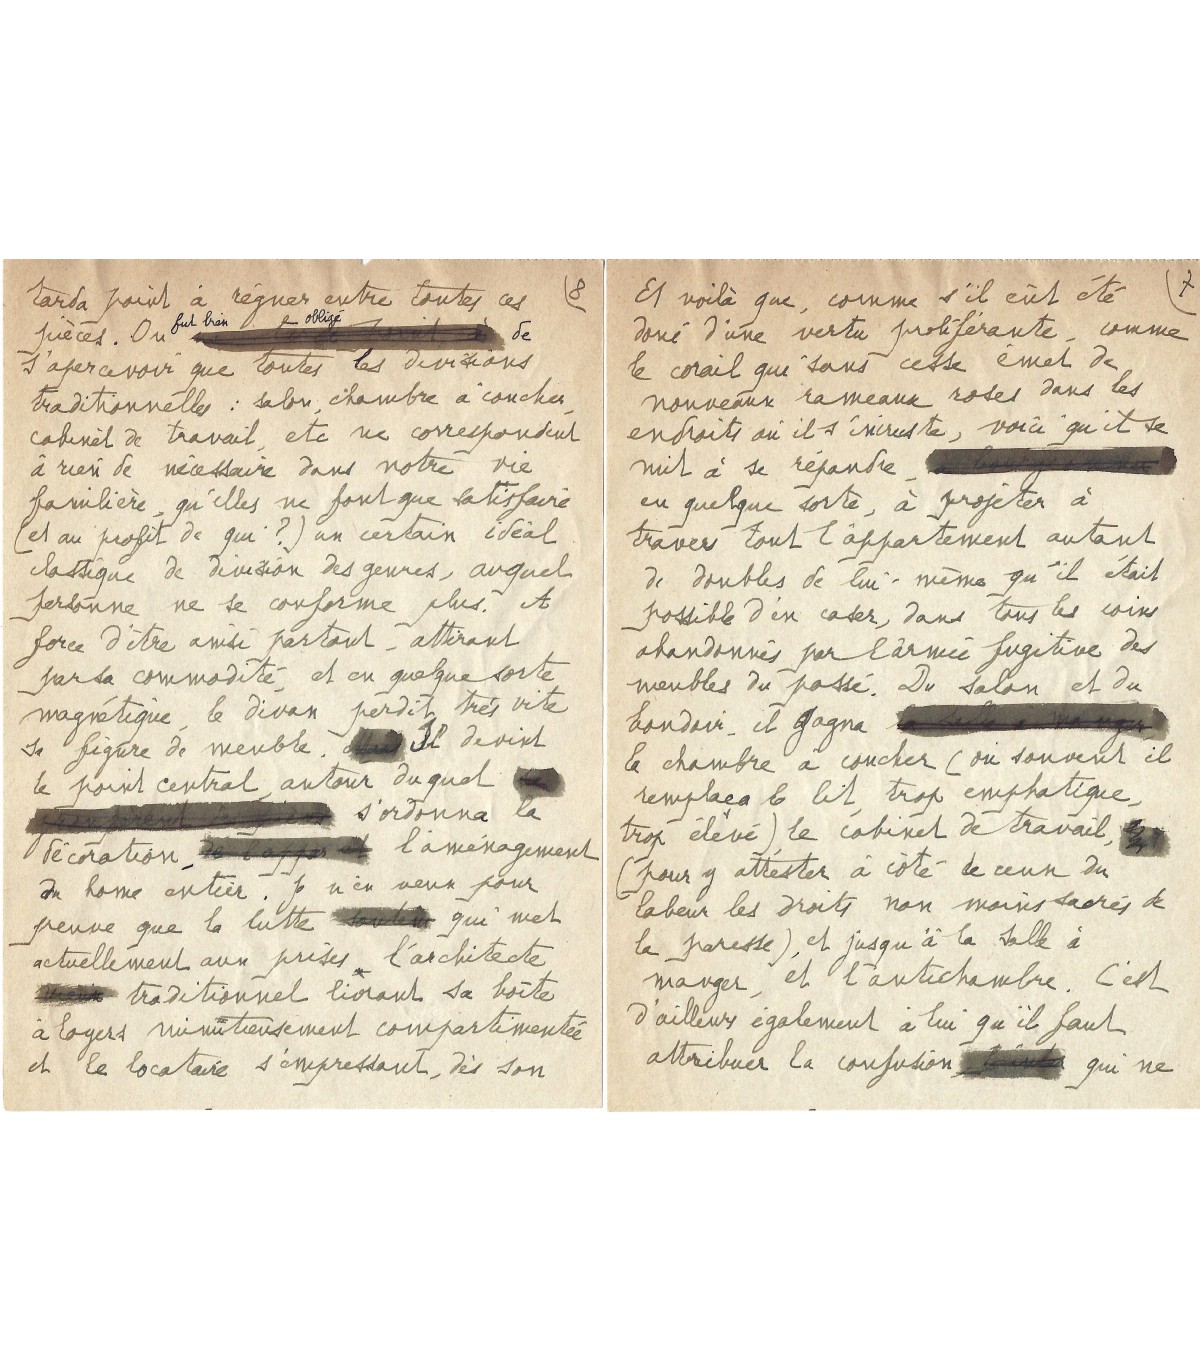 8
tarda point à régner entre toutes ces
pièces. On fut bien obligé de
s'apercevoir que toutes les divisions
traditionnelles : salon, chambre à coucher,
cabinet de travail, etc ne correspondent
à rien de nécessaire dans notre vie
familière, qu'elles ne font que satisfaire
(et au profit de qui ?) un certain idéal
classique de division des genres, auquel
personne ne se conforme plus. A
force d'être ainsi partout, attirant
par sa commodité, et en quelque sorte
magnétique, le divan perdit très vite
sa figure de meuble. Il devint
le point central, autour duquel
s'ordonna la
décoration, l'aménagement
du home entier. Je n'en veux pour
preuve que la lutte qui met
actuellement aux prises, l'architecte
traditionnel livrant sa boîte
à loyers minutieusement compartimentée
et le locataire s'empressant, dès son
7
Et voilà que, comme s'il eût été
doué d'une vertu proliférante, comme
le corail qui sans cesse émet de
nouveaux rameaux roses dans les
endroits où il s'incruste, voici qu'il se
mit à se répandre,
en quelque sorte, à projeter à
travers tout l'appartement autant
de doubles de lui-même qu'il était
possible d'en caser, dans tous les coins
abandonnés par l'armée fugitive des
meubles du passé. Du salon et du
boudoir, il gagna
la chambre à coucher (où souvent il
remplaça le lit, trop emphatique,
trop élevé), le cabinet de travail,
(pour y attester à côté de ceux du
labeur les droits non moins sacrés de
la paresse), et jusqu'à la salle à
manger, et l'antichambre. C'est
d'ailleurs également à lui qu'il faut
attribuer la confusion, qui ne